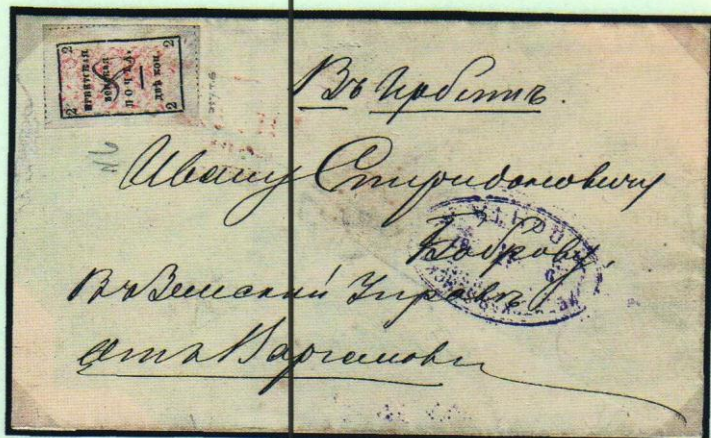 2 2
ИРБИТСКАЯ
ЗЕМСКАЯ
ПОЧТА.
ДВѢ КОП.
2 2
Въ Ирбитъ.
Ивану Спиридоновичу
Боброву,
Въ Земской Управѣ
отъ